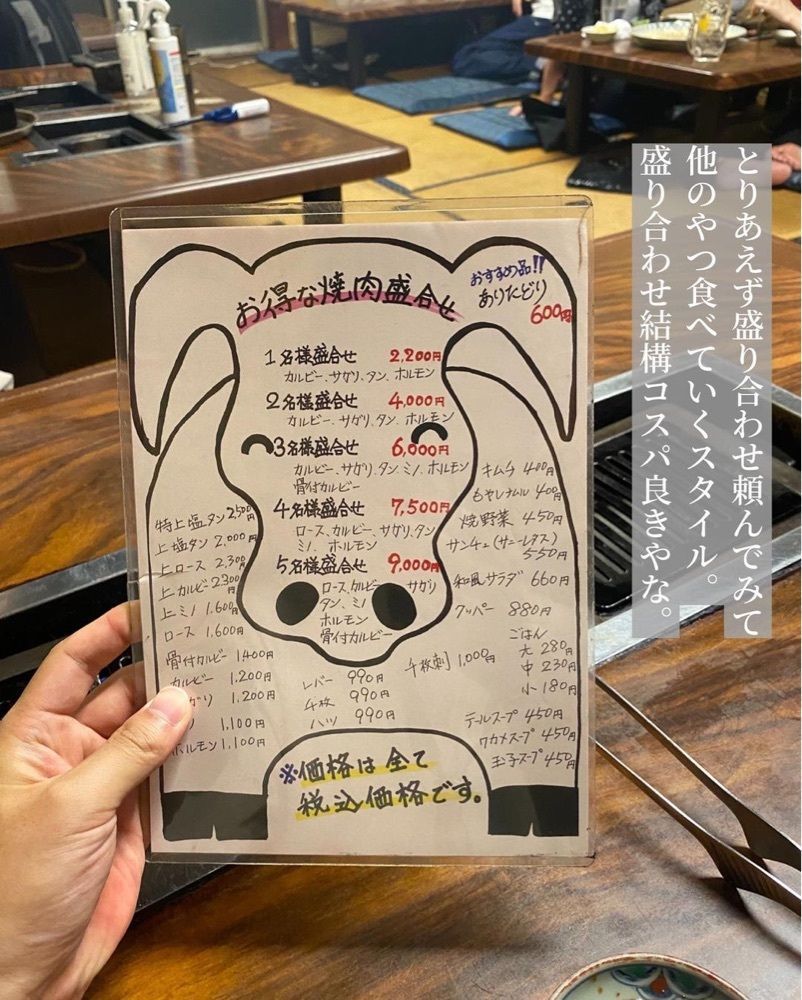 とりあえず盛り合わせ頼んでみて
他のやつ食べていくスタイル。
盛り合わせ結構コスパ良きやな。
お得な焼肉盛合せ
おすすめ品!!
ありたどり
600円
1名様盛合せ 2,200円
カルビー、サガリ、タン、ホルモン
2名様盛合せ 4,000円
カルビー、サガリ、タン、ミノ、ホルモン
3名様盛合せ 6,000円
カルビー、サガリ、タン、ミノ、ホルモン
骨付カルビー
4名様盛合せ 7,500円
ロース、カルビー、サガリ、タン
ミノ、ホルモン
5名様盛合せ 9,000円
ロース、カルビー、サガリ
タン、ミノ
ホルモン
骨付カルビー
特上塩タン 2,500円
上塩タン 2,000円
上ロース 2,300
上カルビー 2300
上ミノ 1,600
ロース 1,600円
骨付カルビー 1,400円
カルビー 1,200円
ガリ 1,200円
1,100円
ホルモン 1,100円
レバー 990円
千枚 990円
ハツ 990円
千枚刺 1,000円
キムチ 400円
もやしナムル 400円
焼野菜 450円
サンチュ(サニーレタス)
550円
和風サラダ 660円
クッパー 880円
ごはん
大 280円
中 230円
小 180円
テールスープ 450円
ワカメスープ 450円
玉子スープ 450円
※価格は全て
税込価格です。